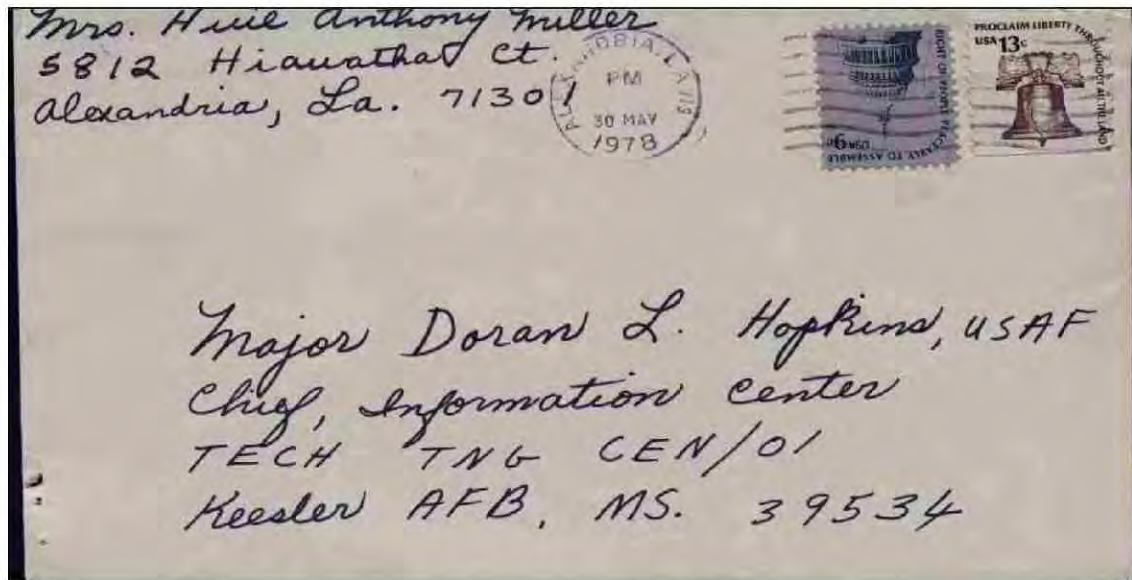 Mrs. Huie Anthony Miller
5812 Hiawatha Ct.
Alexandria, La. 71301
PM
30 MAY
1978
RIGHT OF PEOPLE PEACEABLY TO ASSEMBLE
USA 9c
PROCLAIM LIBERTY THROUGHOUT ALL THE LAND
USA 13c
Major Doran L. Hopkins, USAF
Chief, Information Center
TECH TNG CEN/OI
Keesler AFB, MS. 39534